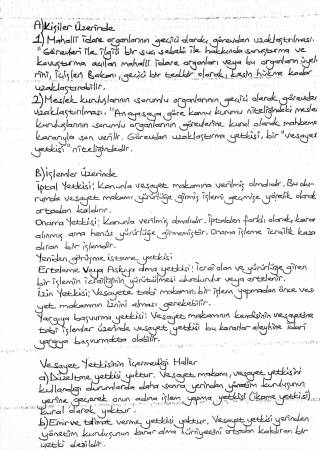 A) Kişiler Üzerinde
1) Mahallî idare organlarının geçici olarak, görevden uzaklaştırılması.
"Görevleri ile ilgili bir suç sebebi ile hakkında soruşturma ve
kovuşturma açılan mahallî idare organları veya bu organların üyele-
rini, İçişleri Bakanı, geçici bir tedbir olarak, kesin hükme kadar
uzaklaştırabilir.
2) Meslek kuruluşlarının sorumlu organlarının, geçici olarak, görevden
uzaklaştırılması, "Anayasaya göre kamu kurumu niteliğindeki meslek
kuruluşlarının sorumlu organlarının görevlerine kural olarak mahkeme
kararıyla son verilir. Görevden uzaklaştırma yetkisi, bir "vesayet
yetkisi" niteliğindedir.
B) İşlemler Üzerinde
İptal Yetkisi: Kanunla vesayet makamına verilmiş olmalıdır. Bu du-
rumda vesayet makamı yürürlüğe girmiş işlemi geçmişe yönelik olarak
ortadan kaldırır.
Onama Yetkisi: Kanunla verilmiş olmalıdır. İptalden farklı olarak, karar
alınmış ama henüz yürürlüğe girmemiştir. Onama işleme icrailik kazan-
dıran bir işlemdir.
Yeniden görüşme isteme yetkisi
Erteleme veya Askıya alma yetkisi: İcrai olan ve yürürlüğe giren
bir işlemin icrailiğinin yürütülmesi durdurulur veya ertelenir.
İzin Yetkisi: Vesayete tabi makamın bir işlem yapmadan önce vesa-
yet makamının iznini alması gerekebilir.
Yargıya başvurma yetkisi: Vesayet makamının kendisinin vesayetine
tabi işlemler üzerinde vesayet yetkili bu kararlar aleyhine idari
yargıya başvurmakta olabilir.
Vesayet Yetkisinin İçermediği Haller
a) Düzeltme yetkisi yoktur. Vesayet makamı, vesayet yetkisini
kullandığı durumlarda daha sonra yerinden yönetim kuruluşunun
yerine geçerek onun adına işlem yapma yetkisi (ikame yetkisi)
kural olarak yoktur.
b) Emir ve talimat verme yetkisi yoktur. Vesayet yetkisi yerinden
yönetim kuruluşunun karar alma hürriyetini ortadan kaldıran bir
yetki değildir.